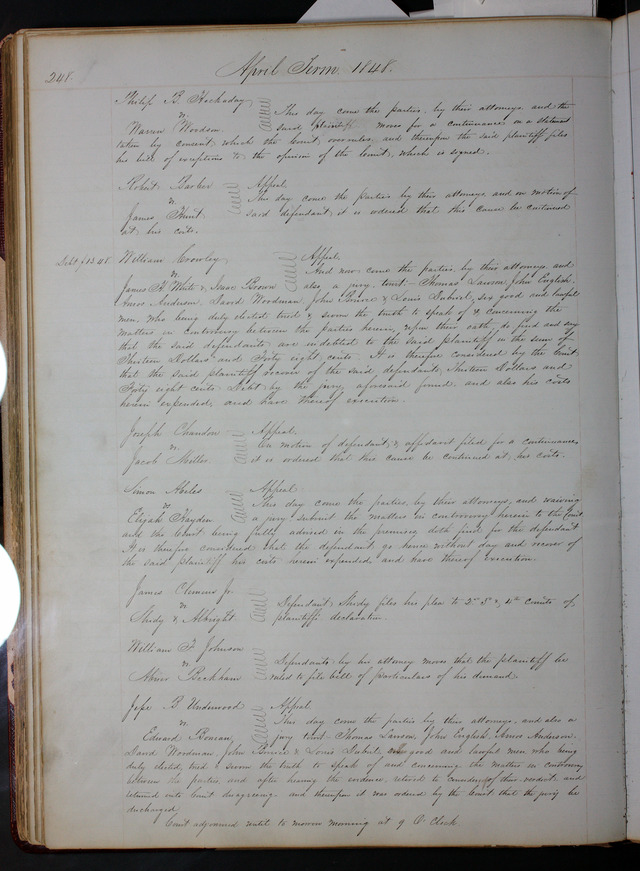 248.
April Term 1848.
Philip B. Hockaday
vs
Warren Woodson
This day come the parties by their attorneys and the
said plaintiff moves for a continuance on a statement
taken by consent which the Court overrules and thereupon the said plaintiff files
his bill of exceptions to the opinion of the Court, which is signed.
Robert Barker
vs
James Hunt
Appeal
This day come the parties by their attorneys and on motion of
said defendant, it is ordered that this cause be continued
at his costs.
Debt $13.48
William Crowley
vs
James H White & Isaac Brown
Appeal
And now come the parties by their attorneys and
also a jury towit Thomas Lawson, John English
Amos Anderson, David Woodman, John & Louis Dubriel, six good and lawful
men, who being duly elected tried & sworn the truth to speak of & concerning the
matters in controversy between the parties herein, upon their oath do find and say
that the said defendants are indebted to the said plaintiff in the sum of
Thirteen Dollars and Forty eight cents. It is therefore considered by the Court
that the said plaintiff recover of the said defendants Thirteen Dollars and
Forty eight cents Debt by the jury aforesaid found and also his costs
herein expended, and have thereof execution.
Joseph Chandon
vs
Jacob Miller
Appeal
On motion of defendant, & affidavit filed for a continuance
it is ordered that this cause be continued at his costs.
Simon Abeles
vs
Elijah Hayden
Appeal
This day come the parties by their attorneys, and waiving
a jury submit the matters in controversy herein to the Court
and the Court being fully advised in the premises doth find for the defendant
It is therefore considered that the defendant go hence without day and recover of
the said plaintiff his costs herein expended, and have thereof execution.
James Clemens Jr.
vs
Study & Albright
Defendant Study files his plea to 2d 3d & 4th counts of
plaintiffs declaration.
William F. Johnson
vs
Abner Beckham
Defendants by his attorney moves that the plaintiff be
ruled to file bill of particulars of his demand.
Jesse B Underwood
vs
Edward
Appeal
This day come the parties by their attorneys, and also a
jury towit Thomas Lawson, John English, Amos Anderson,
David Woodman, John & Louis Dubriel six good and lawful men, who being
duly elected, tried & sworn the truth to speak of and concerning the matters in controversy
between the parties, and after hearing the evidence retired to consider of their verdict and
returned into Court disagreeing, and thereupon it was ordered by the Court that the jury be
discharged
Court adjourned until to morrow morning at 9 O'Clock